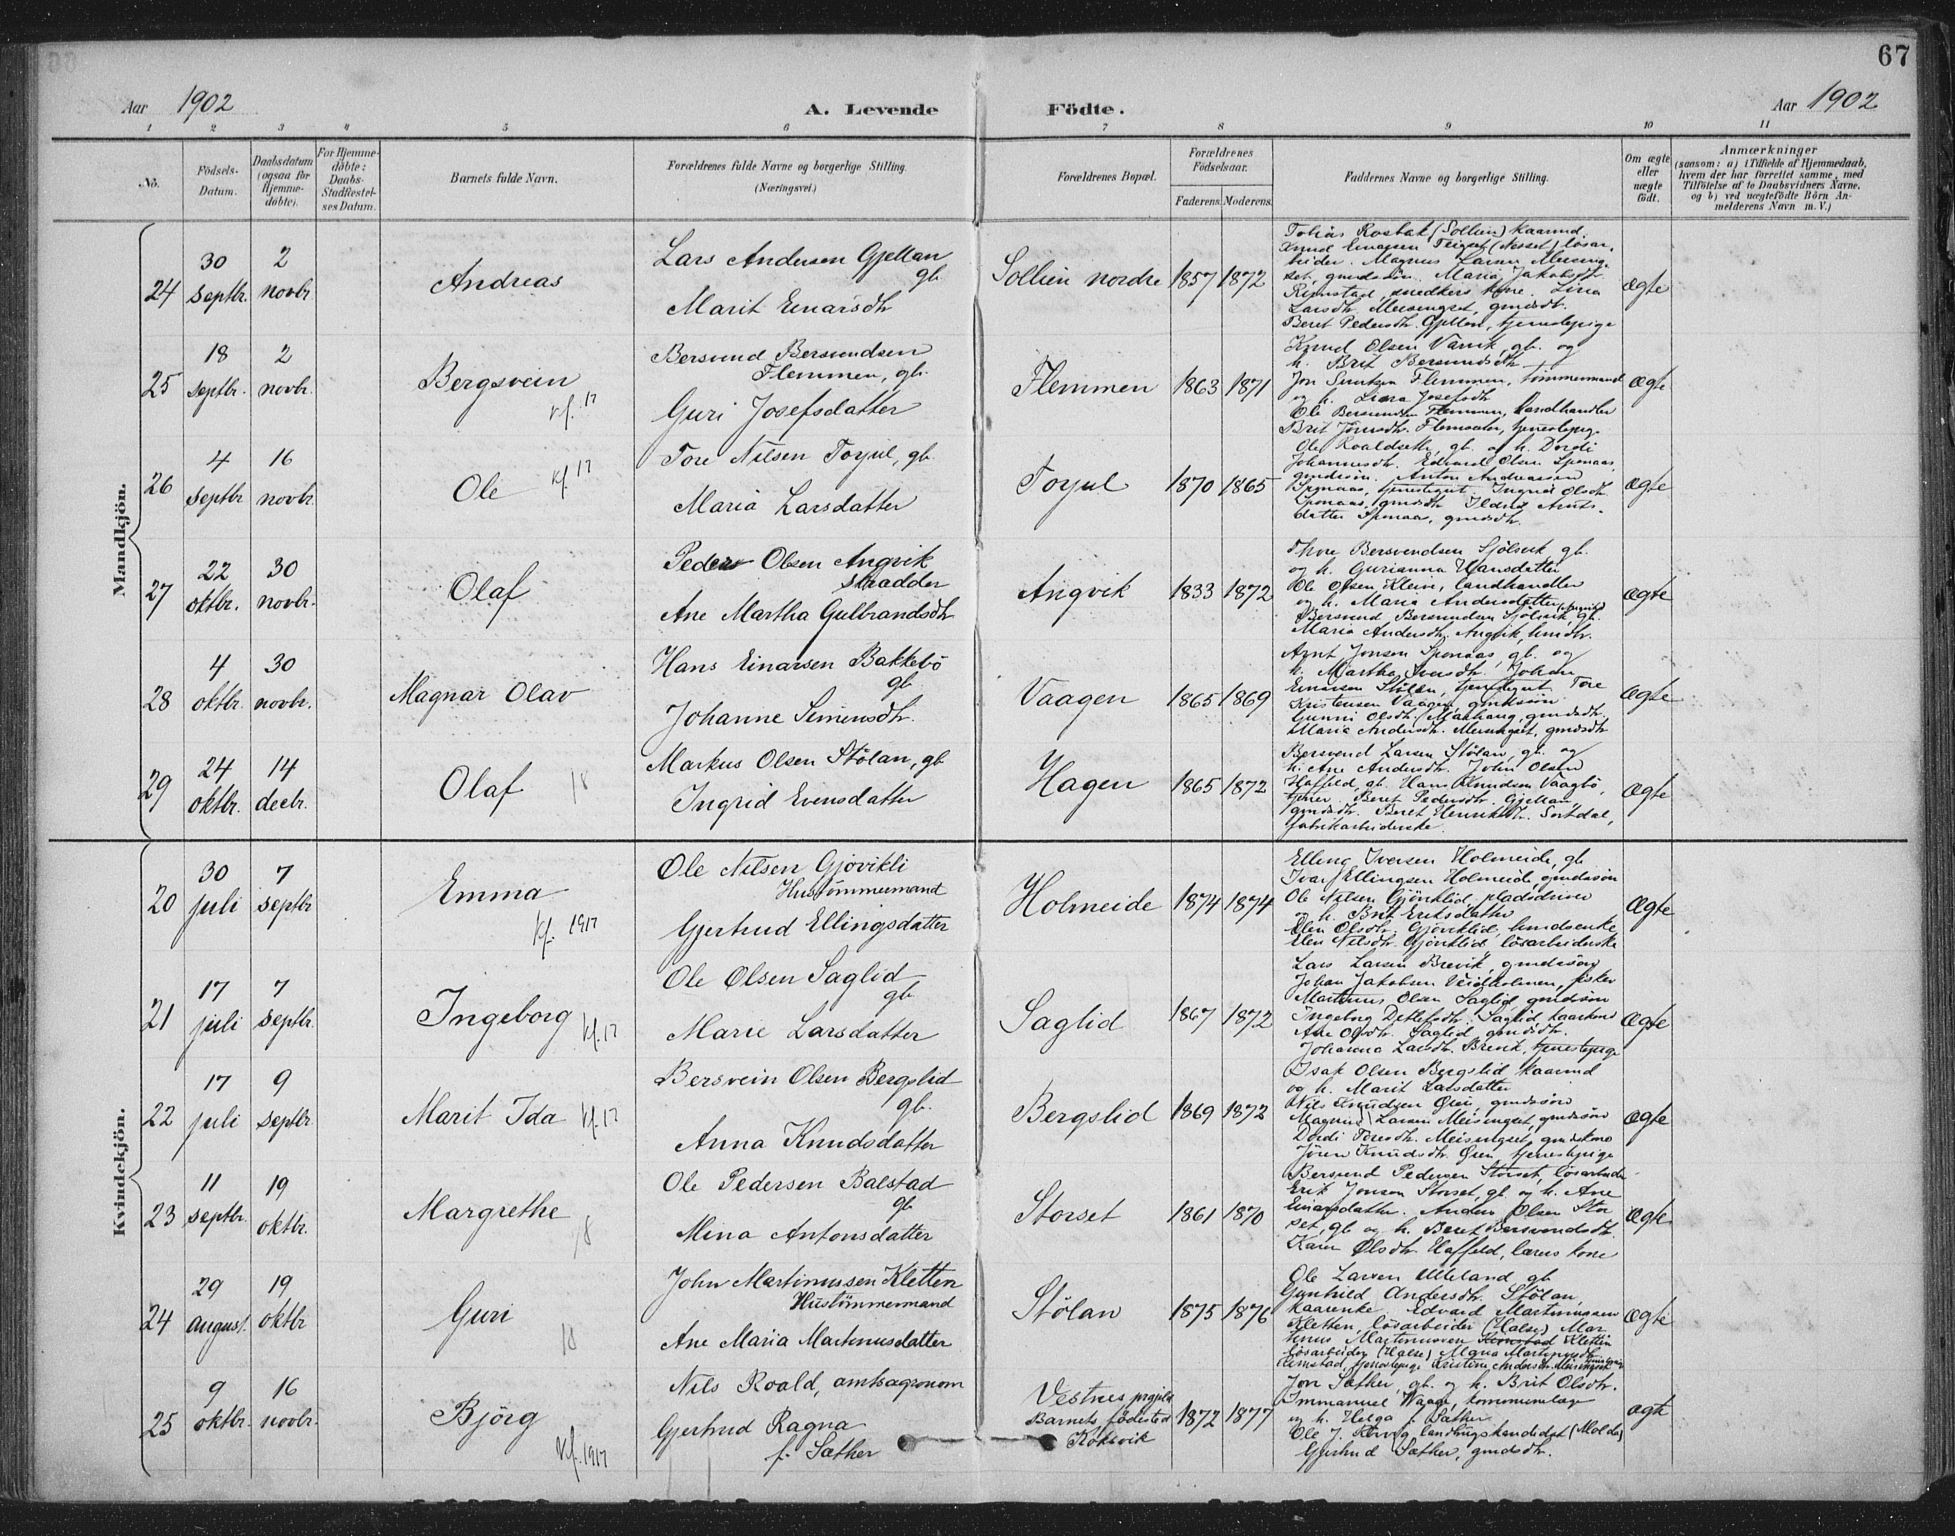 67
Aar 1902
A. Levende Födte.
Aar 1902
1 2 3 4 5 6 7 8 9 10 11
No.
Födsels-Datum.
Daabsdatum (ogsaa for Hjemme-döbte).
For Hjemme-döbte: Daabs-Stadfæstel-ses Datum.
Barnets fulde Navn.
Forældrenes fulde Navne og borgerlige Stilling.
(Næringsvei.)
Forældrenes Bopæl.
Forældrenes Födselsaar.
Faderens. Moderens.
Faddernes Navne og borgerlige Stilling.
Om ægte eller uægte födt.
Anmærkninger
(saasom: a) i Tilfælde af Hjemmedaab, hvem der har forrettet samme, med Tilföielse af to Daabsvidners Navne, og b) ved uægtefödte Börn Anmelderens Navn m. V.)
Mandkjön.
24 30 septbr. 2 novbr. Andreas
Lars Andersen Gjellan gb.
Marit Einarsdtr
Sollien nordre 1857 1872
Tobias Rosbak (Sollien) kaarmd.
Rimstad, snedkers kone. Lina
Larsdtr. Meisingset, gmdsdt.
Beret Pedersdtr. Gjellan, tjenestepige
ægte
25 18 septbr. 2 novbr. Bergsvein kf. 17
Bersvend Bersvendsen
Flemmen, gb.
Guri Josefsdatter
Flemmen 1863 1871
Knud Olsen Varvik, gb. og
h. Brit Bersvendsdtr.
Jon Flemmen, tömmermand
og h. Lina Josefsdtr
Ole Bersvendsen Flemmen, landhandler
ægte
26 4 septbr 16 novbr. Ole kf 17
Tore Nilsen Torjul, gb.
Maria Larsdatter
Torjul 1870 1865
Ole Roaldset, gb. og h. Dordi
Johannesdtr. Edvard Olsen Sponaas,
gmdssön. Anton Andreassen
Sponaas, gmdsdtr. Ildrid Arnts-
datter Sponaas, gmdsdtr.
ægte
27 22 oktbr. 30 novbr. Olaf
Peder Olsen Angvik
skrædder
Ane Martha Gulbrandsdtr
Angvik 1833 1872
Thore Bersvendsen Sjölsvik gb.
og h. Gurianna Hansdatter
Ole Olsen Klein, landhandler
og h. Maria Andersdatter (Angvik)
Bersvend Bersvendsen Sjölsvik, gb.
Maria Andersdtr. Angvik,
ægte
28 4 oktbr. 30 novbr. Magnar Olav
Hans Einarsen Bakkebö
gb.
Johanne Simensdtr.
Vaagen 1865 1869
Arnt Jonsen Sponaas, gb. og
h. Martha Iversdtr. Johan
Einarsen Stölan, Tore
Kristensen Vaagen, gmdssön
Gunni Olsdtr. gmdsdtr.
Marie Andersdtr. Meisingset, gmdsdtr
ægte
29 24 oktbr. 14 decbr. Olaf 18
Markus Olsen Stölan, gb
Ingrid Evensdatter
Hagen 1865 1872
Bersvend Larsen Stölan, gb. og
h. Ane Andersdtr. John Olsen
Haffeld, gb. Hans Knudsen Vaagbö,
tjener. Beret Pedersdtr. Gjellan,
gmdsdtr. Beret Henriksdtr. Sortdal,
fabrikarbeiderske.
ægte
Kvindekjön.
20 30 juli 7 septbr Emma kf. 1917
Ole Nilsen Gjövikli
Hustömmermand
Gjertrud Ellingsdatter
Holmeide 1874 1874
Elling Iversen Holmeide, gb
Ivar Ellingsen Holmeide, gmdssön
Ole Nilsen Gjöviklid, pladsdriver
og h. Brit Eriksdatter
Elen Olsdtr. Gjöviklid,
Elen Nilsdtr. Gjöviklid, lösarbeiderske
ægte
21 17 juli 7 septbr. Ingeborg kf. 17
Ole Olsen Saglid
gb.
Marie Larsdatter
Saglid 1867 1872
Lars Larsen Brevik, gmdssön
Johan Jakobsen Veidholmen, fisker
Martinus Olsen Saglid gmdssön
Ingeborg Detlefsdtr. Saglid
Ane Olsdtr. Saglid gmdsdtr.
Johanna Larsdtr. Brevik, tjenestepige
ægte
22 17 juli 9 septbr. Marit Ida kf. 17
Bersvein Olsen Bergslid
gb.
Anna Knudsdatter
Bergslid 1869 1872
Isak Olsen Bergslid kaarmd
og h. Marit Larsdatter
Nils Knudsen Öien, gmdssön
Magnus Larsen Meisingset, gmdssön
Dordi Toresdtr. Meisingset, gmdskone
Jören Knudsdtr. Öien, tjenestepige
ægte
23 11 septbr. 19 oktbr. Margrethe 18
Ole Pedersen Balstad
gb.
Mina Antonsdatter
Storset 1861 1870
Bersvend Pedersen Storset, lösarbeider
Erik Jonsen Storset, gb. og h. Ane
Einarsdatter. Anders Olsen Stor
set, gb. og h. Beret Bersvendsdtr.
Karen Olsdtr. Haffeld, lærers kone
ægte
24 29 august. 19 oktbr Guri 18
John Martinussen Kletten
Hustömmermand
Ane Maria Martinusdatter
Stölan 1875 1876
Ole Larsen gb.
Gunhild Andersdtr. Stölan,
kaarenke. Edvard Martinussen
Kletten, lösarbeider (Halse) Mar
tinus Martinussen Kletten
lösarbeider (Halse)
Rimstad, tjenestepige Kristine Andersdtr. Meisingset
ægte
25 9 oktbr. 16 novbr. Björg kf. 1917
Nils Roald, amtsagronom
Gjertrud Ragna
f. Sæther
Vestnes prgjeld
Barnets födested
Kokvik
1872 1877
Jon Sæther, gb. og h. Brit Olsdtr.
Immanuel Waage, kommunelæge
og h. Helga f. Sæther
Ole J. landbrugskandidat (Molde)
Gjertrud Sæther, gmdsdtr.
ægte